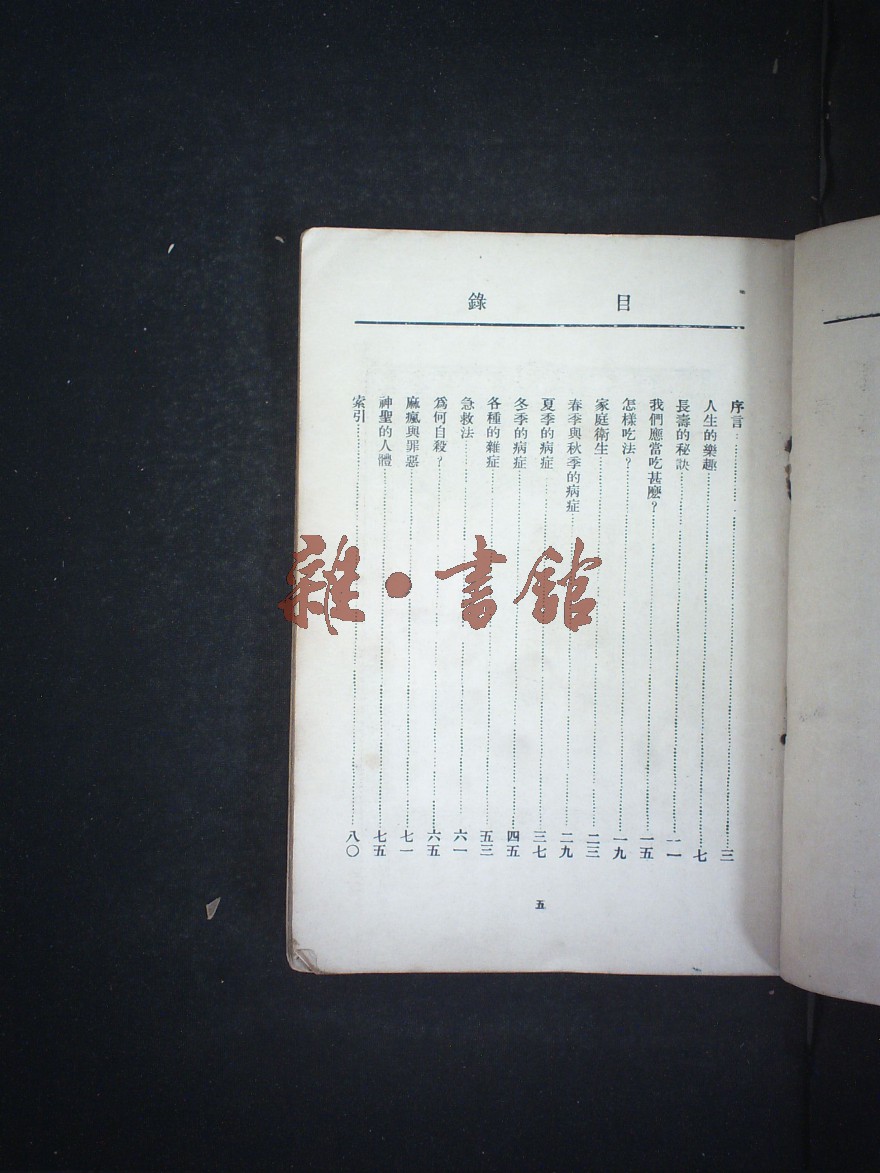 目錄
序言……三
人生的樂趣……七
長壽的秘訣……一一
我們應當吃甚麼？……一五
怎樣吃法？……一九
家庭衛生……二三
春季與秋季的病症……二九
夏季的病症……三七
冬季的病症……四五
各種的雜症……五三
急救法……六一
為何自殺？……六五
麻瘋與罪惡……七一
神聖的人體……七五
索引……八〇
五
雜·書館